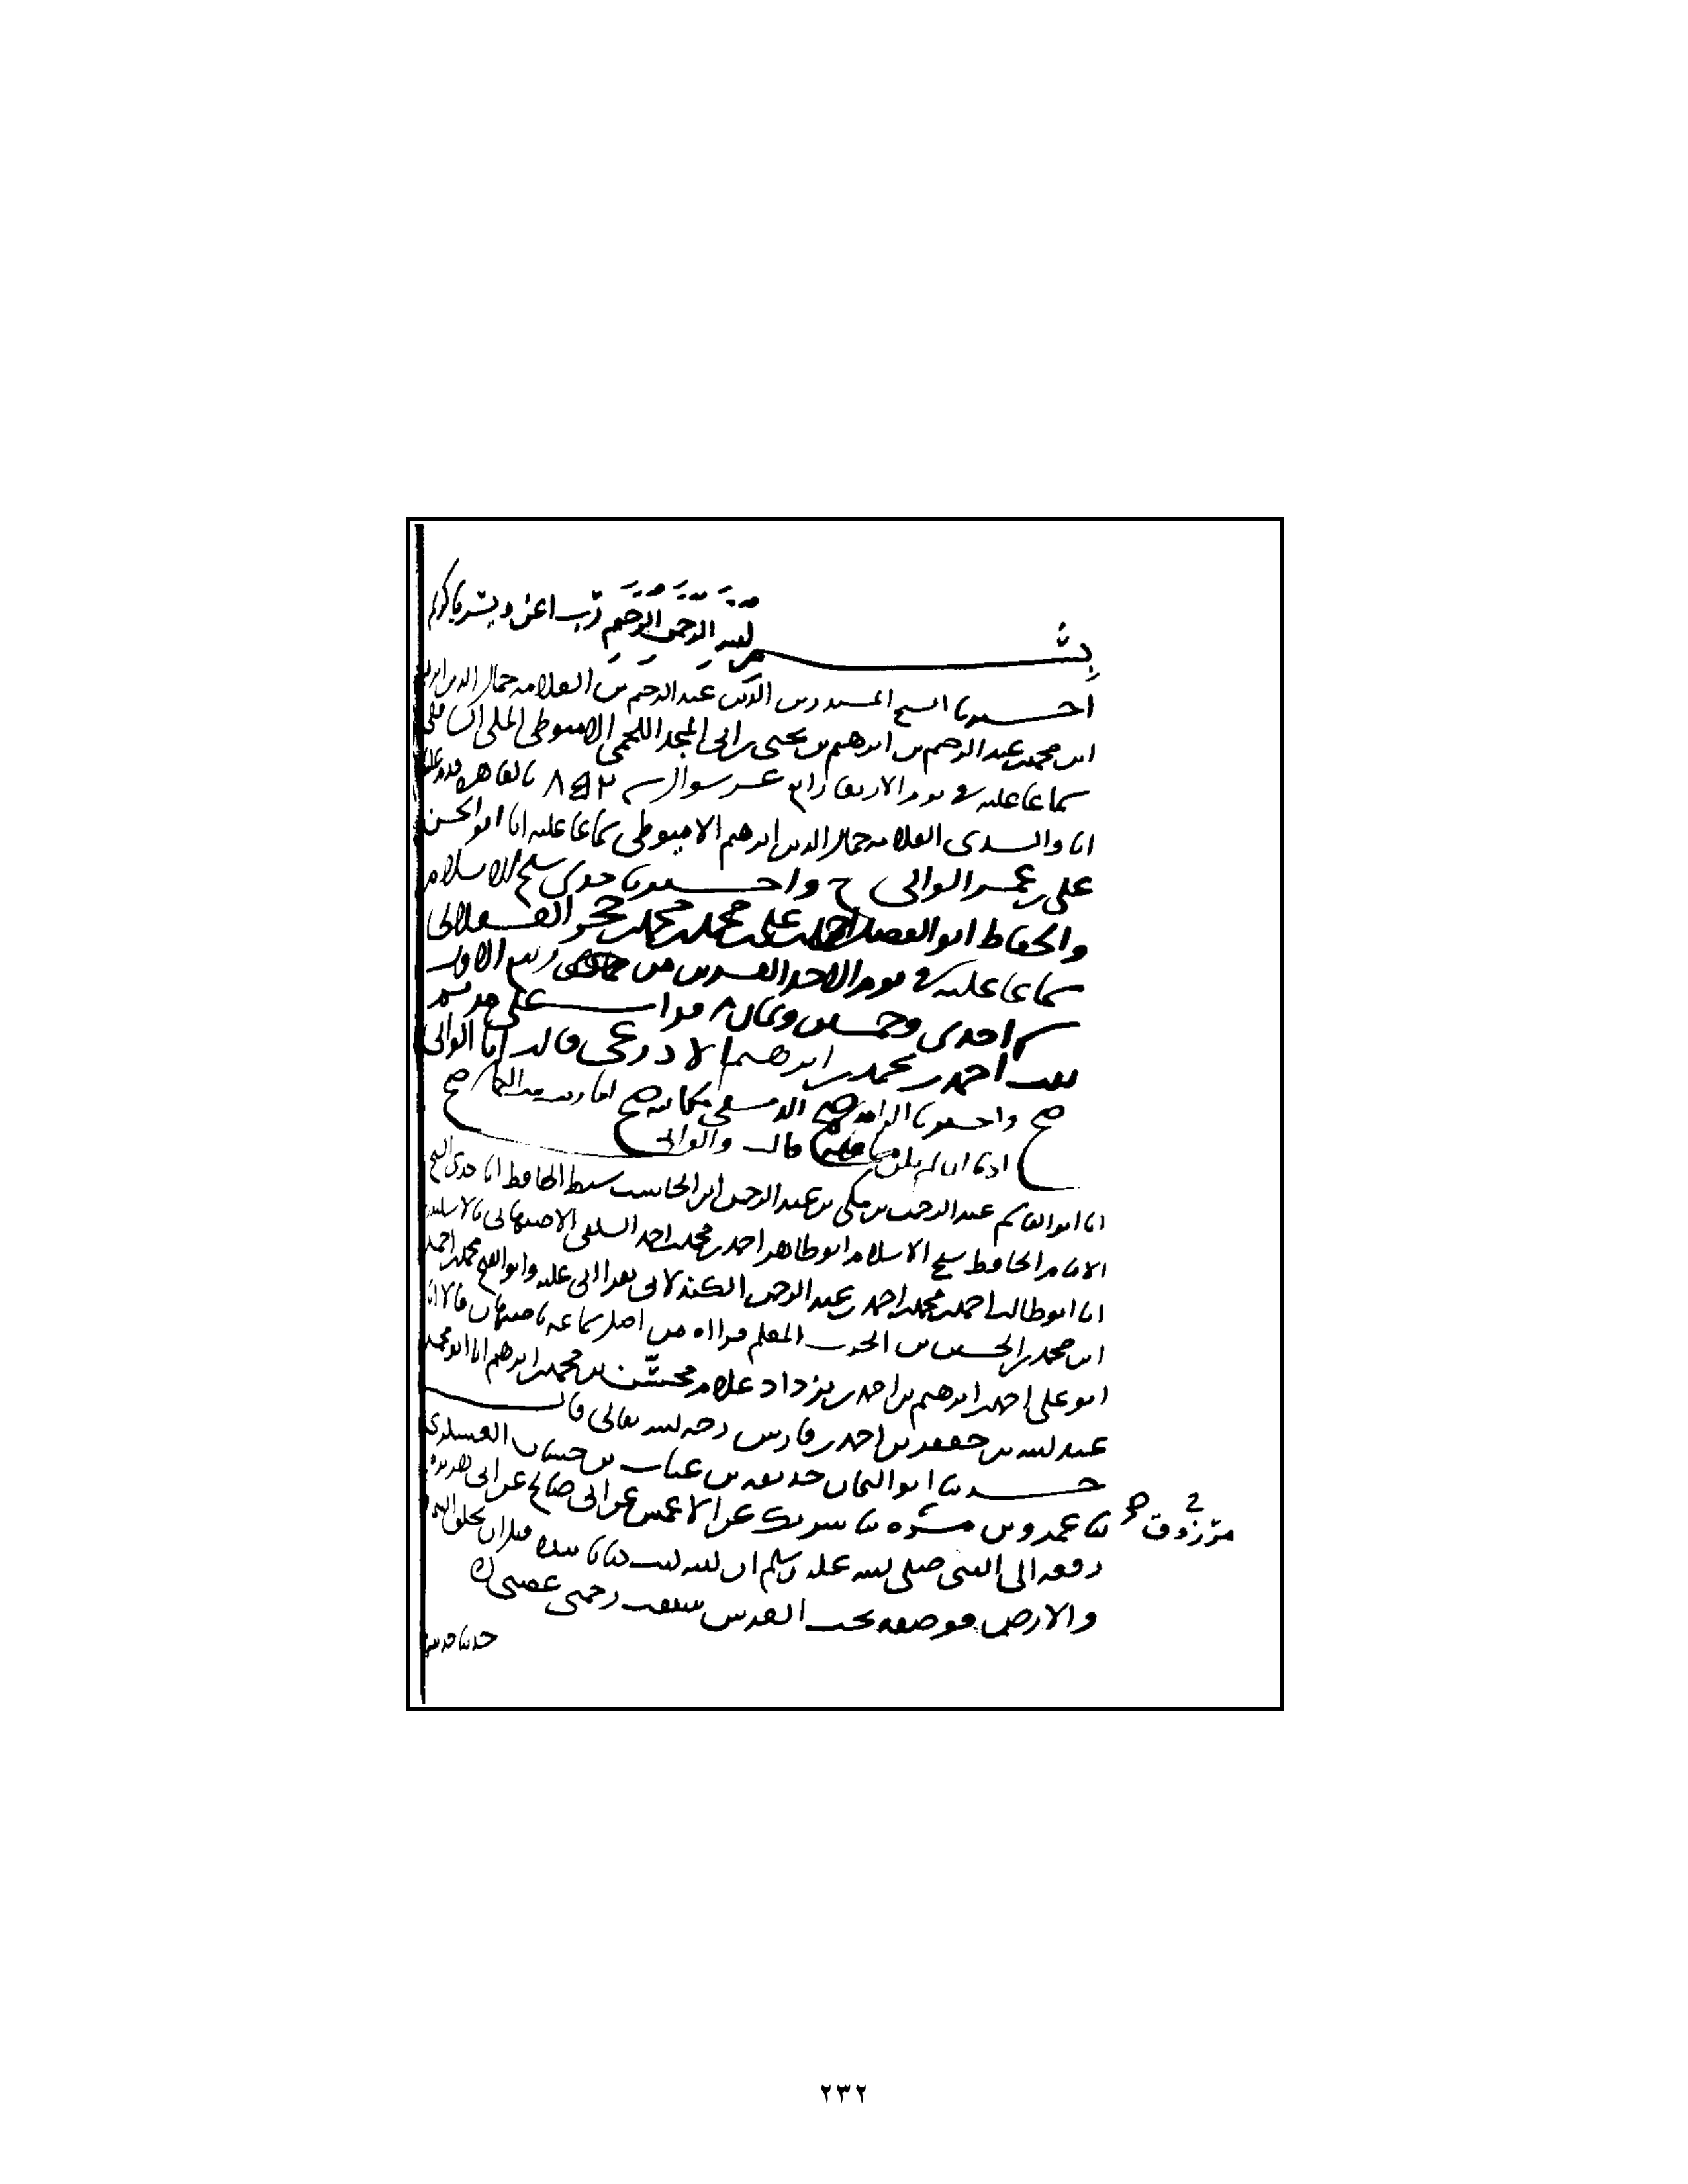 بسم الله الرحمن الرحيم رب اعن ويسر يا كريم
اخبرنا الشيخ المسند زين الدين عبد الرحيم بن العلامه جمال الدين ابراهيم
ابن محمد بن عبد الرحيم بن ابرهيم بن يحيى بن ابي المجد اللخمي الاميوطي المكي الشافعي
سماعا عليه في يوم الاربعا رابع عشر شوال سنة ٨٥٢ بالقاهره
انا والدي العلامه جمال الدين ابرهيم الاميوطي سماعا عليه انا ابو الحسن
علي بن عمر الواني ح واخبرنا جدي شيخ الاسلام
والحفاظ ابو الفضل احمد بن علي بن محمد بن محمد بن حجر العسقلاني
سماعا عليه في يوم الاحد العشرين من ربيع الاول
سنة احدى وخمسين وثمان ٨ قرات على مريم
بنت احمد بن محمد بن ابرهيم الاذرعي قالت انا الواني
صح واخبرنا الدمشقي مكاتبه صح انا زينب بنت الكمال صح
اذنا ان لم يكن سماعا قالت والواني
انا ابو القاسم عبد الرحمن بن مكي بن عبد الرحمن ابن الحاسب سبط الحافظ انا جدي الشيخ
الامام الحافظ شيخ الاسلام ابو طاهر احمد بن محمد بن احمد السلفي الاصبهاني
انا ابو طالب احمد بن محمد بن احمد بن عبد الرحمن الكندلاني بقراتي عليه وابو الفتح محمد بن احمد
ابن محمد بن الحسين بن الحرث المعلم قراه من اصل سماعه باصبهان قالا انا
ابو علي احمد بن ابرهيم بن احمد بن يزداد غلام محسن بن محمد بن ابرهيم انا ابو محمد
عبد الله بن جعفر بن احمد بن فارس رحمه الله تعالى قال
حدثنا ابو اليمان حذيفه بن غياث بن حسان العسكري
ثنا عمرو بن مره ثنا شريك عن الاعمش عن ابي صالح عن ابي هريره
مرزوق
رفعه الى النبي صلى الله عليه وسلم ان الله كتب كتابا بيده قبل ان يخلق السموات
والارض فوضعه تحت العرش سبقت رحمتي غضبي
حدثنا
٢٣٢